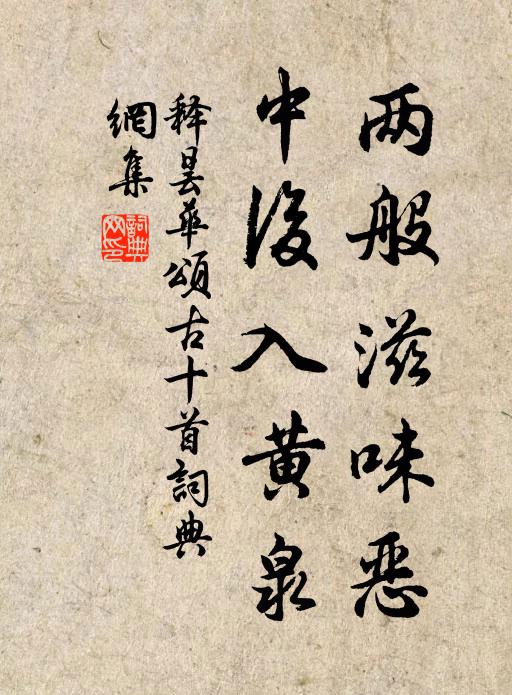 两般滋味恶
中后入黄泉
释昙华颂古十首詞典
網集
詞典網印